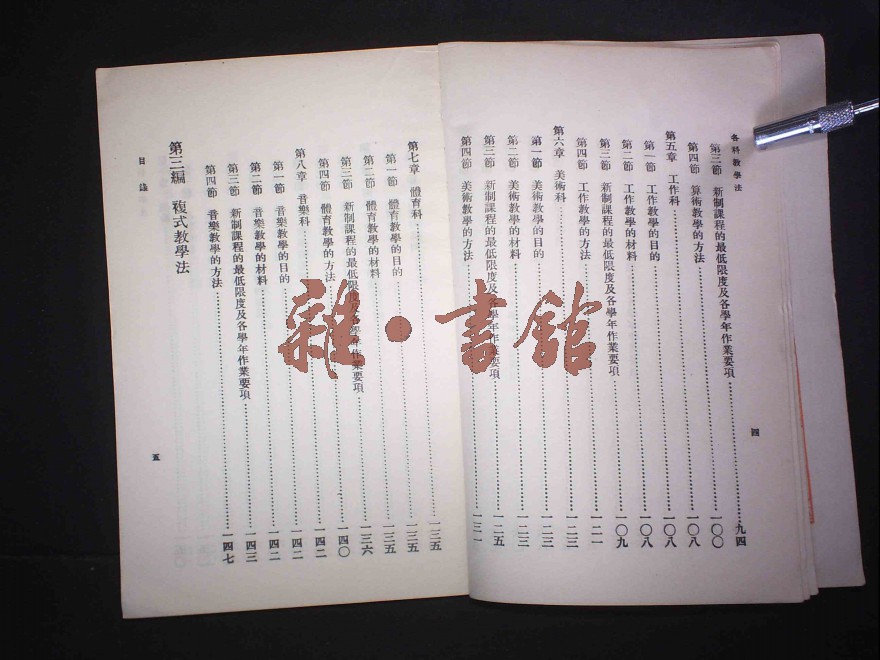 各科教學法
第三節 新制課程的最低限度及各學年作業要項 九四
第四節 算術教學的方法 一〇〇
第五章 工作科 一〇八
第一節 工作教學的目的 一〇八
第二節 工作教學的材料 一〇九
第三節 新制課程的最低限度及各學年作業要項
第四節 工作教學的方法 一二一
第六章 美術科 一二三
第一節 美術教學的目的 一二三
第二節 美術教學的材料 一二三
第三節 新制課程的最低限度及各學年作業要項 一二五
第四節 美術教學的方法 一三一
四
第七章 體育科 一三五
第一節 體育教學的目的 一三五
第二節 體育教學的材料 一三六
第三節 新制課程的最低限度及各學年作業要項 一四〇
第四節 體育教學的方法 一四二
第八章 音樂科 一四二
第一節 音樂教學的目的 一四二
第二節 音樂教學的材料 一四三
第三節 新制課程的最低限度及各學年作業要項
第四節 音樂教學的方法 一四七
第三編 複式教學法
目錄
五
雜·書館